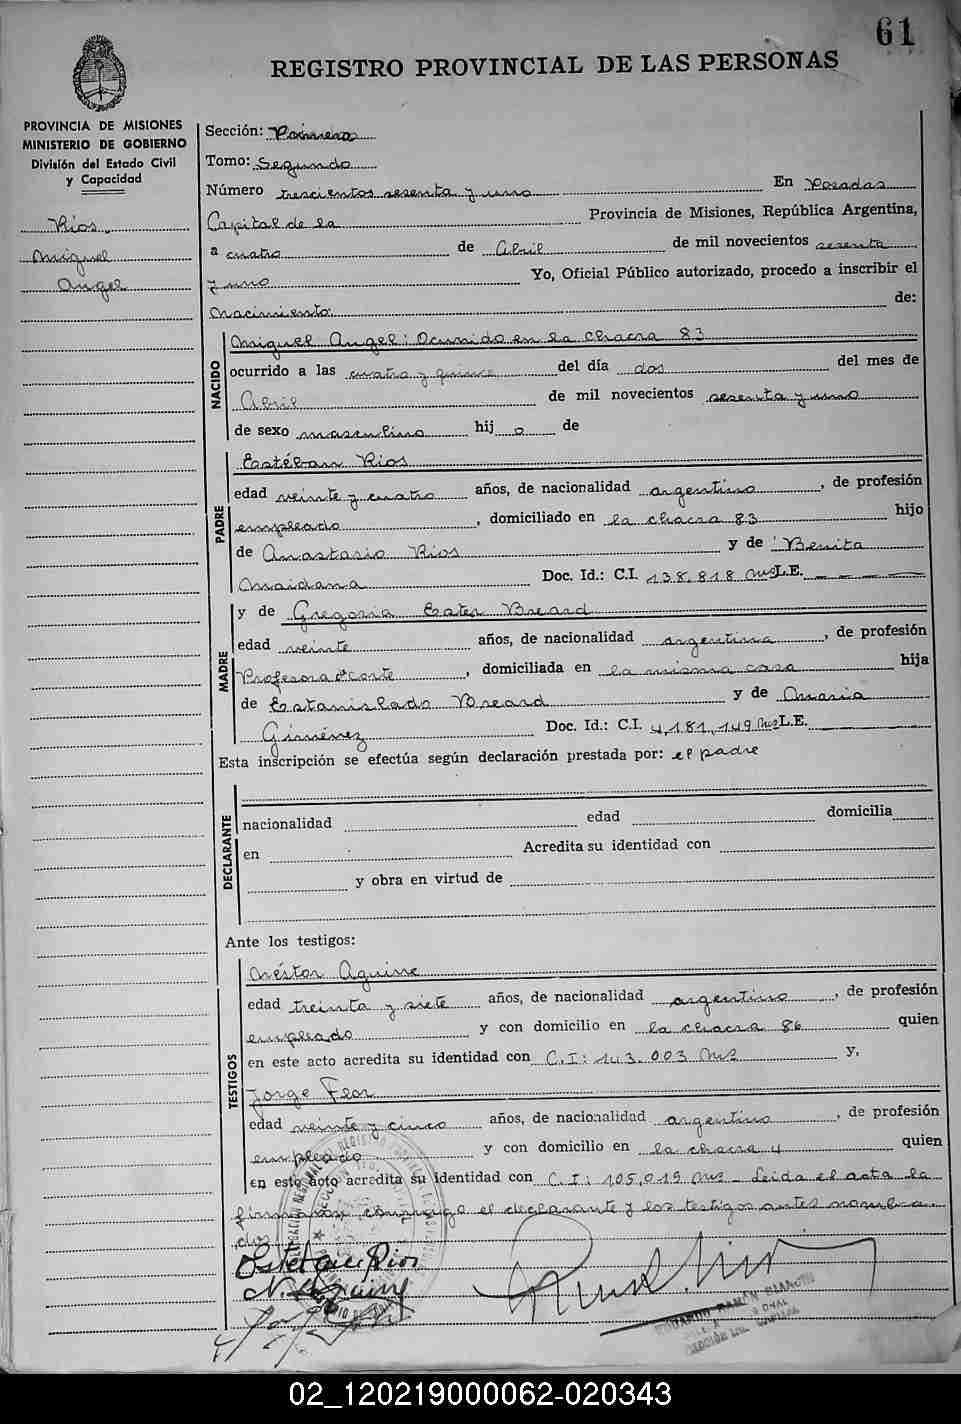 61
REGISTRO PROVINCIAL DE LAS PERSONAS
PROVINCIA DE MISIONES
MINISTERIO DE GOBIERNO
División del Estado Civil
y Capacidad
Ríos,
Miguel
Angel
Sección: Primera
Tomo: Segundo
Número trescientos sesenta y uno En Posadas
Capital de la Provincia de Misiones, República Argentina,
a cuatro de Abril de mil novecientos sesenta
y uno Yo, Oficial Público autorizado, procedo a inscribir el
Nacimiento: de:
NACIDO
Miguel Angel: Ocurrido en la chacra 83
ocurrido a las cuatro y quince del día dos del mes de
Abril de mil novecientos sesenta y uno
de sexo masculino hij o de
PADRE
Estéban Ríos
edad veinte y cuatro años, de nacionalidad argentino, de profesión
empleado, domiciliado en la chacra 83 hijo
de Anastasio Ríos y de Benita
Maidana Doc. Id.: C.I. 138.818 Mns L.E. — — —
MADRE
y de Gregoria Ester Breard
edad veinte años, de nacionalidad argentina, de profesión
Profesora Corte, domiciliada en la misma casa hija
de Estanislado Breard y de María
Giménez Doc. Id.: C.I. 4,181,149 Mns L.E.
Esta inscripción se efectúa según declaración prestada por: el padre
DECLARANTE
nacionalidad edad domicilia
en Acredita su identidad con
y obra en virtud de
Ante los testigos:
TESTIGOS
Néstor Aguirre
edad treinta y siete años, de nacionalidad argentino, de profesión
empleado y con domicilio en la chacra 86 quien
en este acto acredita su identidad con C.I: 143.003 Mns y,
Jorge Flor
edad veinte y cinco años, de nacionalidad argentino, de profesión
empleado y con domicilio en la chacra 4 quien
en este acto acredita su identidad con C.I: 105,019 Mns - Leida el acta la
firman conmigo el declarante y los testigos antes nombra
dos
02_120219000062-020343